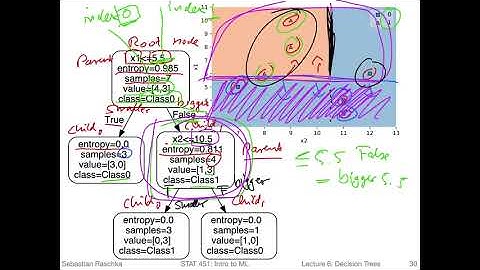 index 0
index 1
Root node
Parent
x1<=5.5
entropy=0.985
samples=7
value=[4,3]
class=Class0
Smaller
True
bigger
False
Child0
Child1
entropy=0.0
samples=3
value=[3,0]
class=Class0
x2<=10.5
entropy=0.811
samples=4
value=[1,3]
class=Class1
Parent
T
F
Smaller
bigger
Child0
Child1
entropy=0.0
samples=3
value=[0,3]
class=Class1
entropy=0.0
samples=1
value=[1,0]
class=Class0
11
10
9
8
7
6
5
4
3
2
7
8
9
10
11
12
13
x2
0
1
≤ 5.5 False
= bigger 5.5
Sebastian Raschka
STAT 451: Intro to ML
Lecture 6: Decision Trees
30